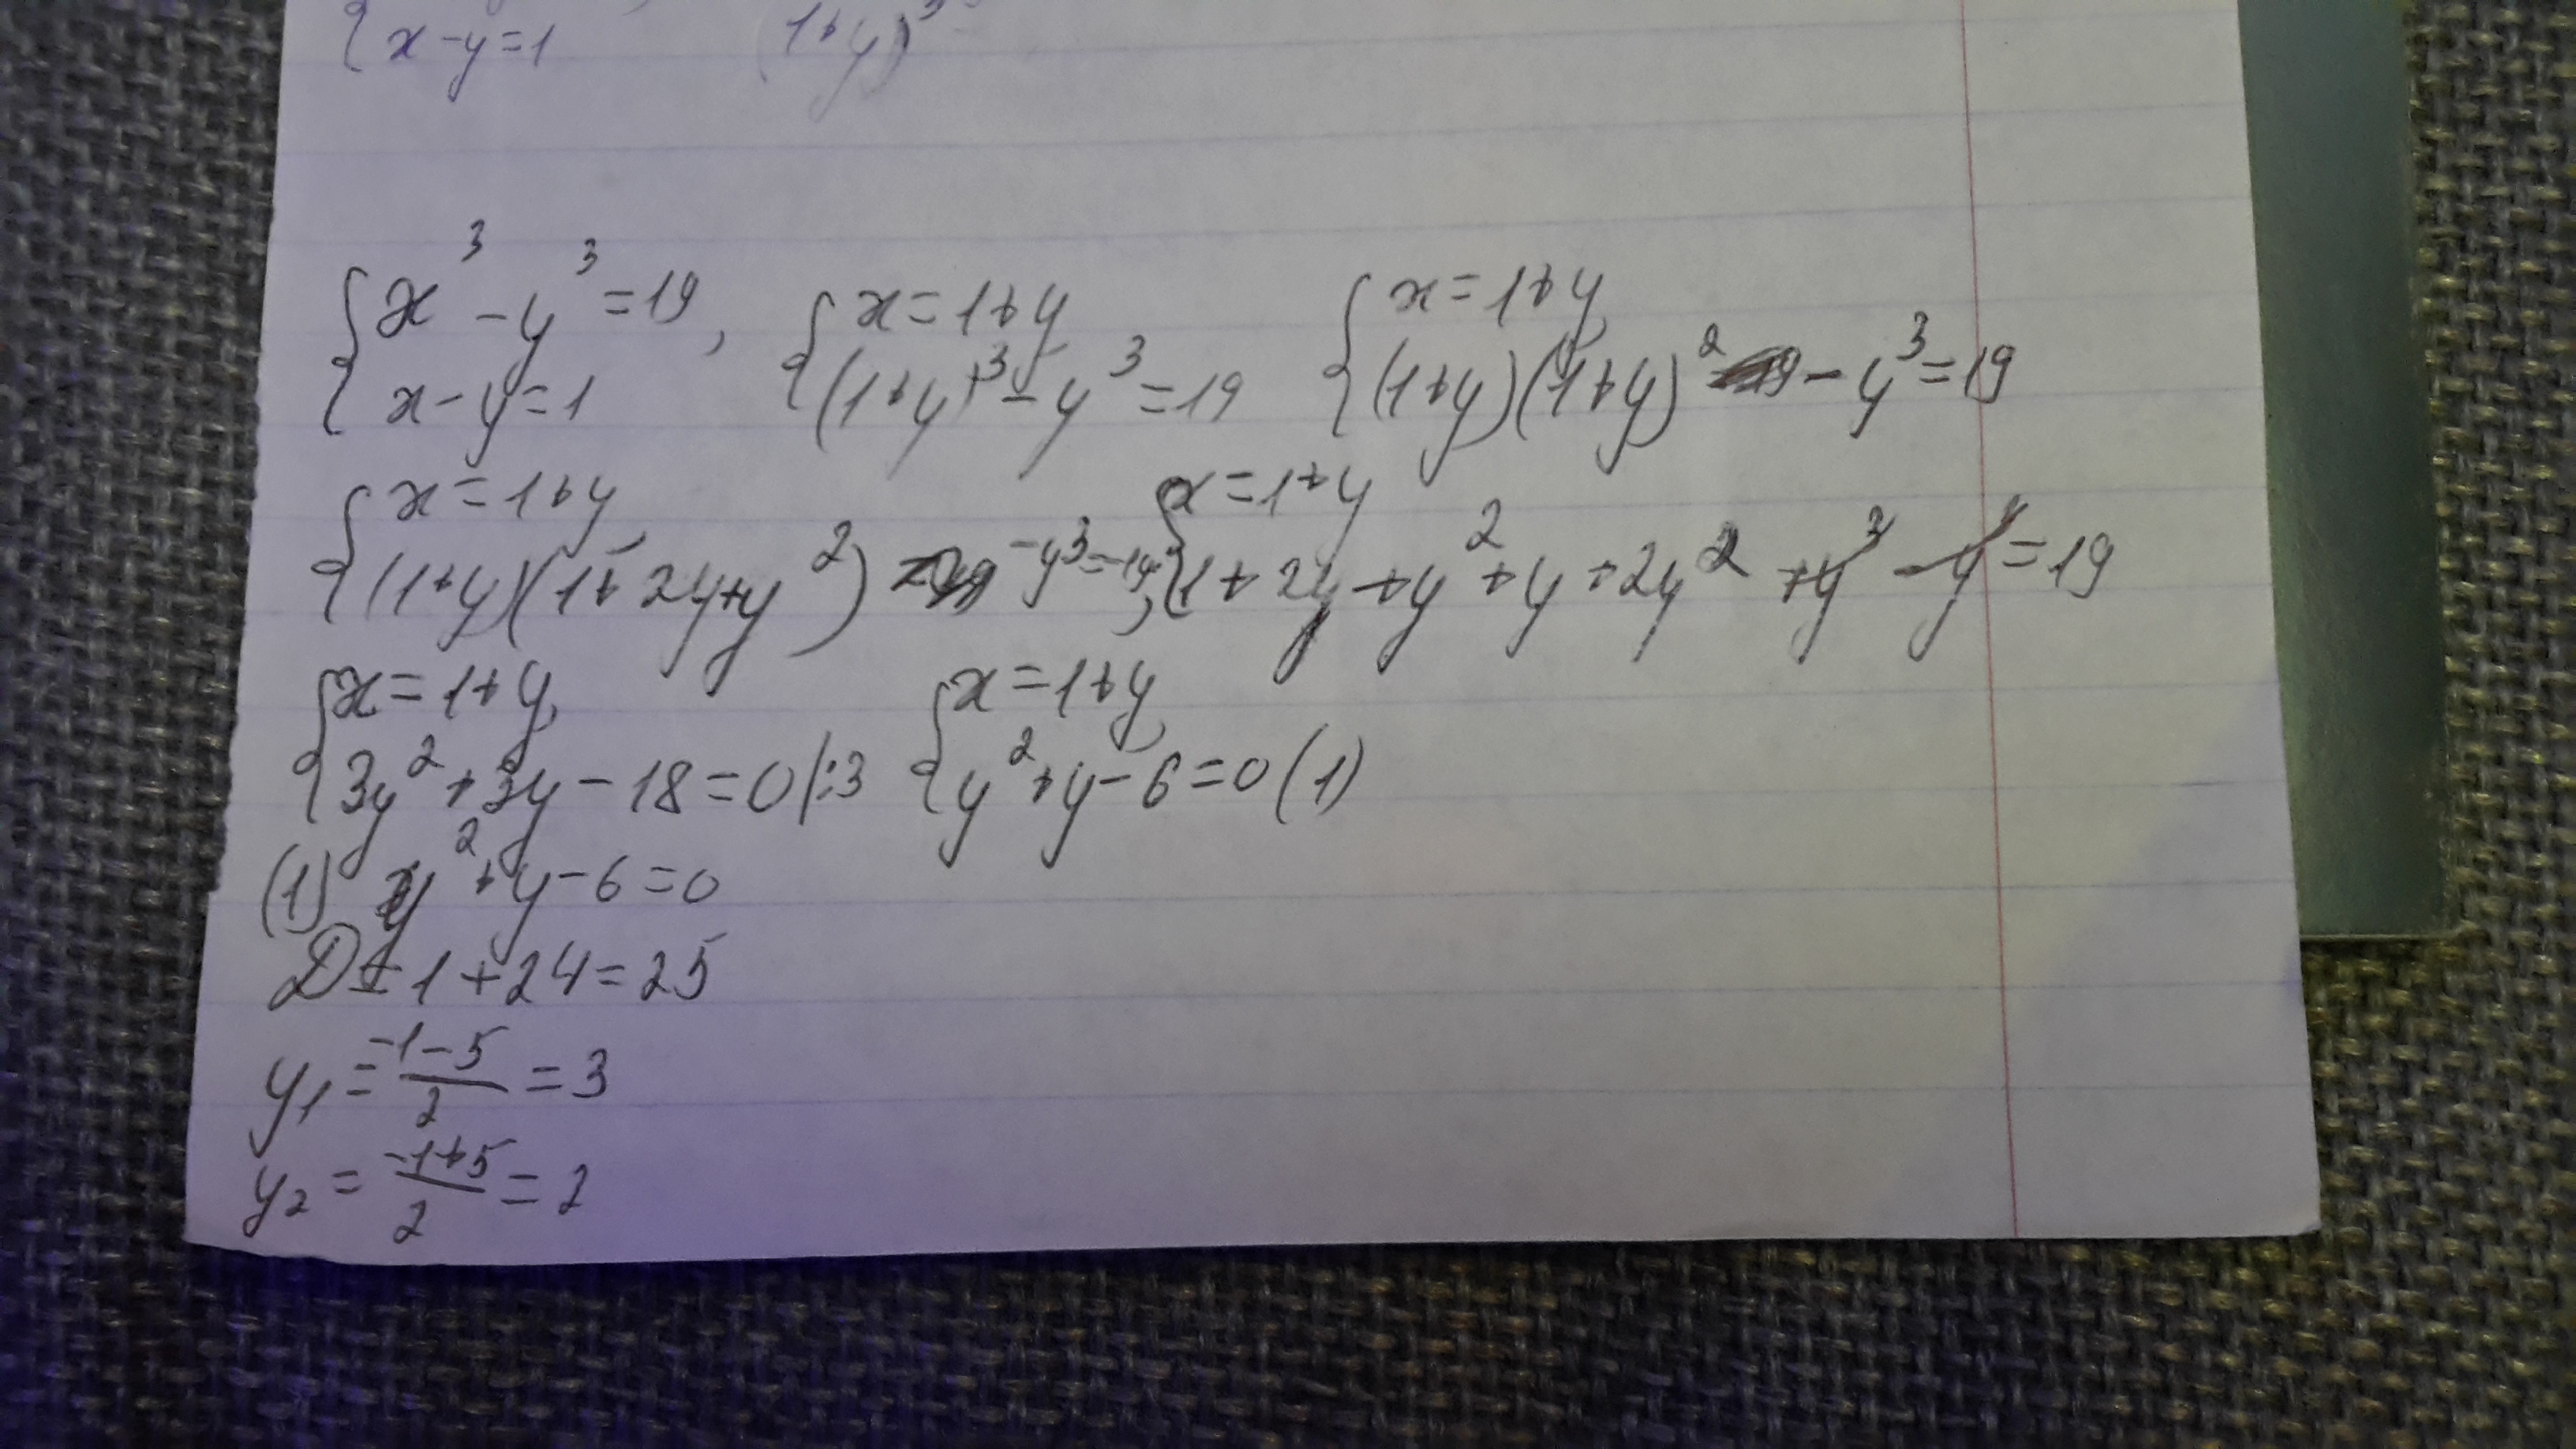 { x - y = 1   (1+y)³
{ x³ - y³ = 19, x - y = 1   { x = 1+y, (1+y)³ - y³ = 19   { x = 1+y, (1+y)(1+y)² - y³ = 19
{ x = 1+y, (1+y)(1+2y+y²) - y³ = 19,   { x = 1+y, 1+2y+y²+y+2y²+y³-y³ = 19
{ x = 1+y, 3y²+3y-18=0 |:3   { x = 1+y, y²+y-6=0 (1)
(1) y²+y-6=0
D = 1+24=25
y₁ = (-1-5)/2 = 3
y₂ = (-1+5)/2 = 2